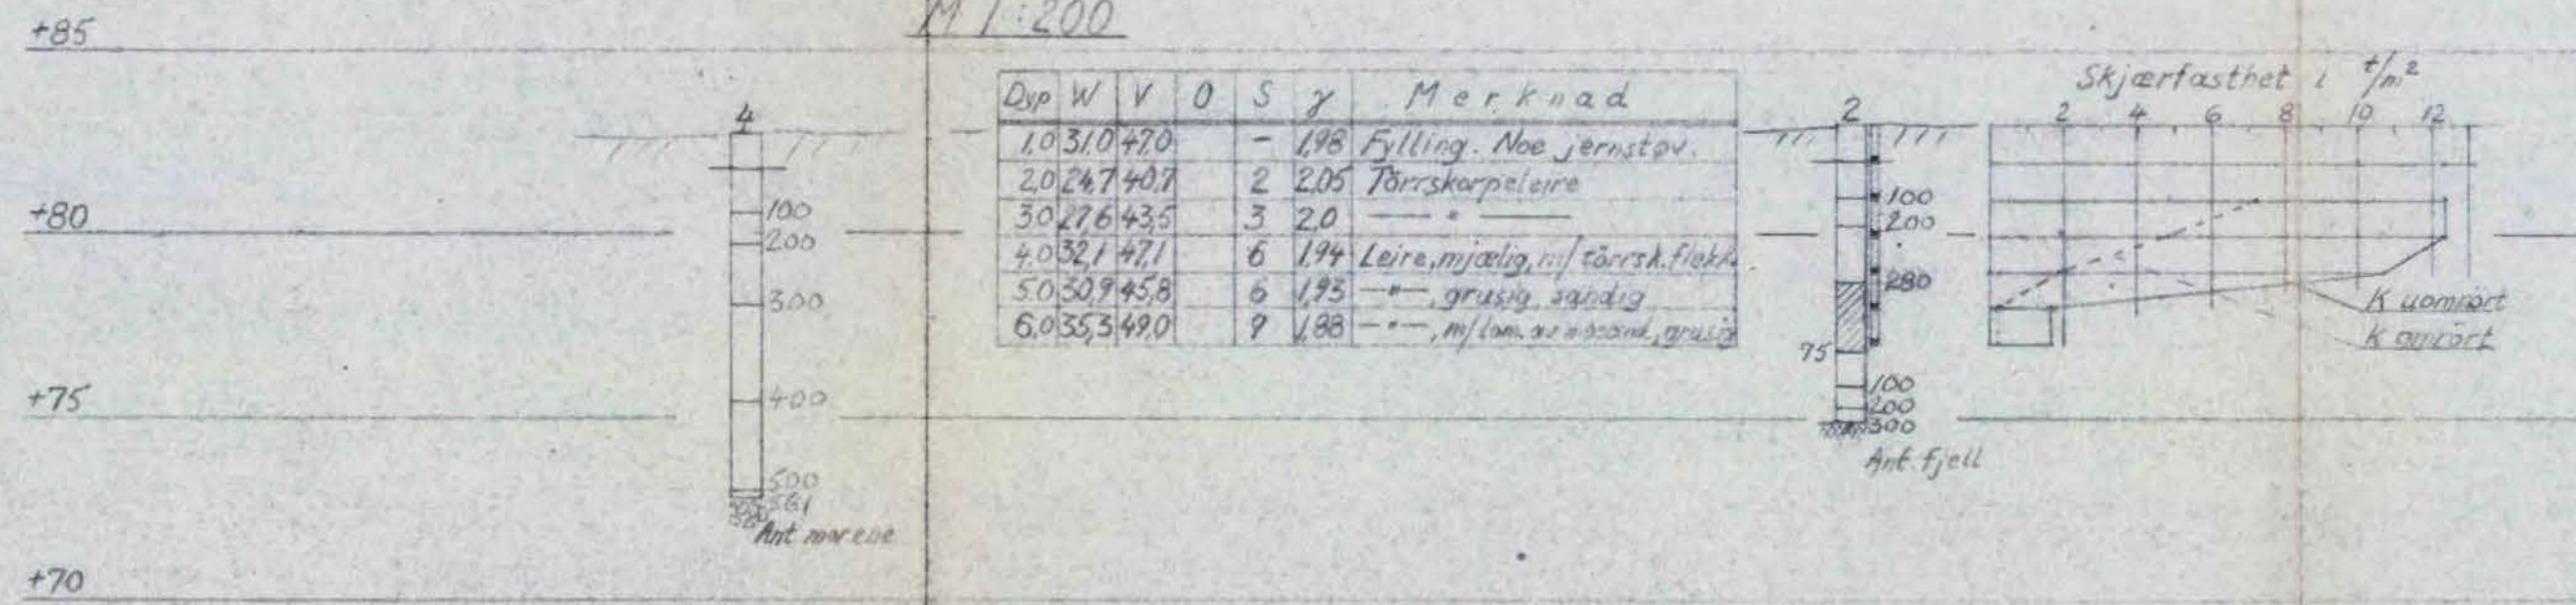 M 1:200
+85
+80
+75
+70
4
100
200
300
400
500
561
Ant morene
Dyp W V O S γ Merknad
1,0 31,0 47,0 - 1,98 Fylling. Noe jernstøv.
2,0 24,7 40,7 2 2,05 Törrskorpeleire
3,0 27,6 43,5 3 2,0 — " —
4,0 32,1 47,1 6 1,94 Leire, mjælig, m/ törrsk. flekk.
5,0 30,9 45,8 6 1,93 —"—, grusig, sandig
6,0 35,3 49,0 9 1,88 —"—, m/ lam. av grusig
2
100
200
280
75
100
200
300
Ant. fjell
Skjærfasthet i t/m²
2 4 6 8 10 12
K uomrört
K omrört